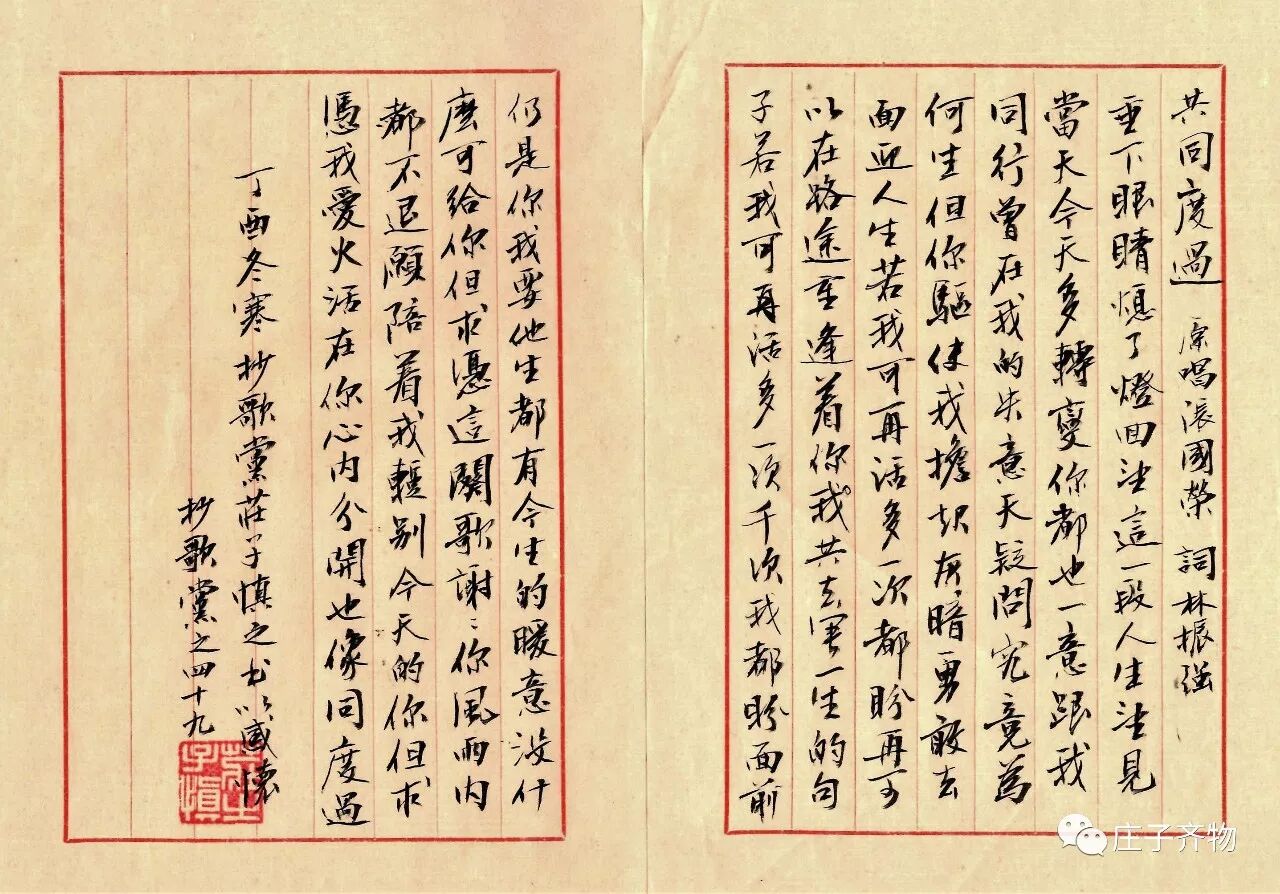 共同度過 原唱張國榮 詞林振強
垂下眼睛熄了燈回望這一段人生望見
當天今天多轉變你都也一意跟我
同行曾在我的失意天疑問究竟為
何生但你驅使我擔起灰暗勇敢去
面迎人生若我可再活多一次都盼再可
以在路途重逢着你我共去寫一生的句
子若我可再活多一次千次我都盼面前
仍是你我要他生都有今生的暖意没什
麼可給你但求憑這闋歌謝〻你風雨内
都不退願陪着我暫别今天的你但求
憑我愛火活在你心内分開也像同度過
丁酉冬寒抄歌黨莊子慎之书以感懷
抄歌黨之四十九
庄子齐物